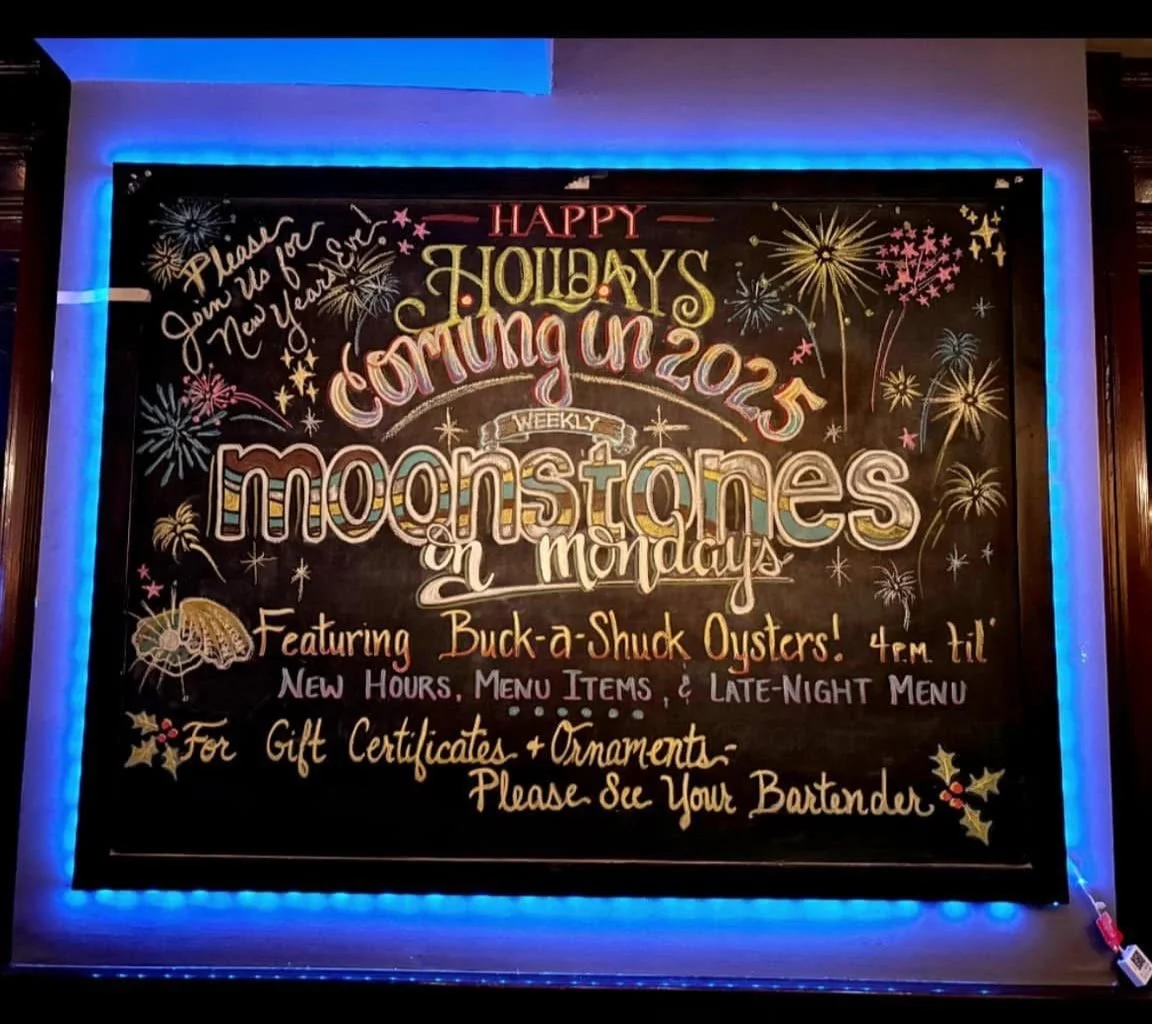 Please
Join Us for
New Year's Eve!
HAPPY
HOLIDAYS
Coming in 2025
WEEKLY
moonstones
on mondays
Featuring Buck-a-Shuck Oysters! 4P.M. til'
NEW HOURS, MENU ITEMS, & LATE-NIGHT MENU
For Gift Certificates + Ornaments-
Please See Your Bartender